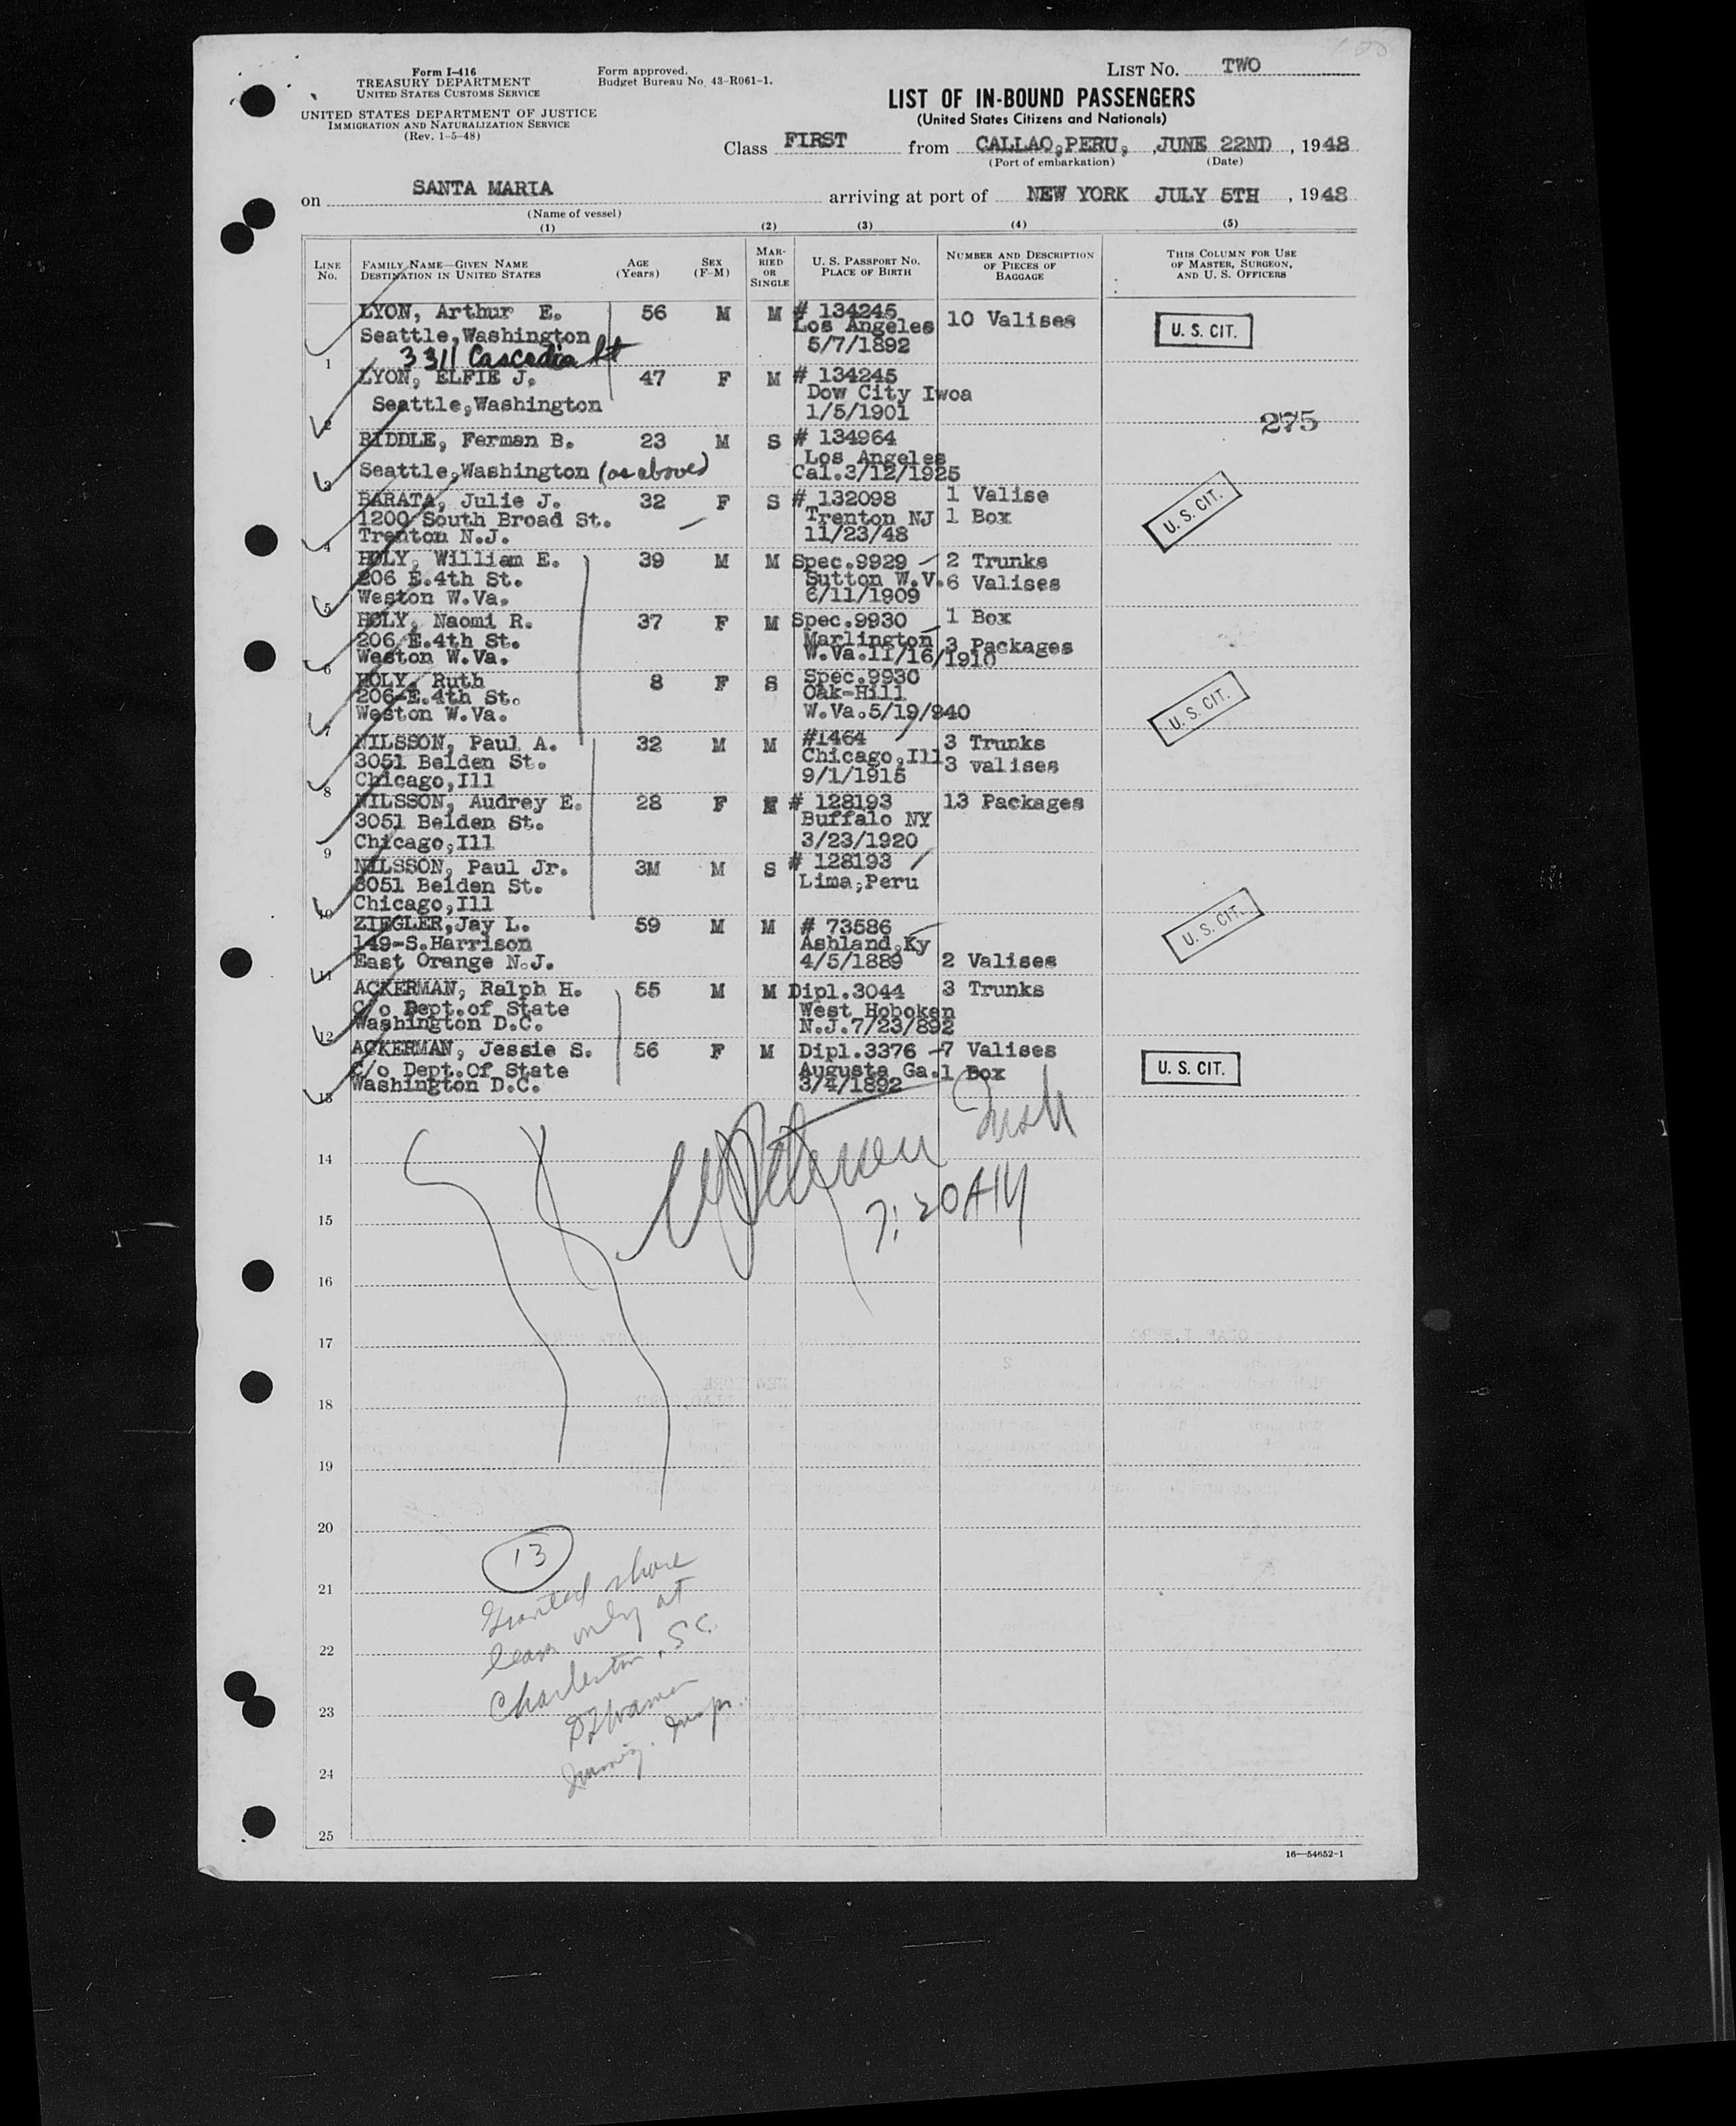 Form I-416
TREASURY DEPARTMENT
UNITED STATES CUSTOMS SERVICE
UNITED STATES DEPARTMENT OF JUSTICE
IMMIGRATION AND NATURALIZATION SERVICE
(Rev. 1-5-48)
Form approved.
Budget Bureau No. 43-R061-1.
LIST NO. TWO
LIST OF IN-BOUND PASSENGERS
(United States Citizens and Nationals)
Class FIRST from CALLAO,PERU, ,JUNE 22ND , 1948
(Port of embarkation) (Date)
on SANTA MARIA arriving at port of NEW YORK JULY 5TH , 1948
(Name of vessel)
(1) (2) (3) (4) (5)
LINE NO.
FAMILY NAME—GIVEN NAME
DESTINATION IN UNITED STATES
AGE (Years)
SEX (F-M)
MARRIED OR SINGLE
U. S. PASSPORT NO.
PLACE OF BIRTH
NUMBER AND DESCRIPTION OF PIECES OF BAGGAGE
THIS COLUMN FOR USE OF MASTER, SURGEON, AND U. S. OFFICERS
LYON, Arthur E. 56 M M # 134245 10 Valises U. S. CIT.
Seattle,Washington Los Angeles
1 3311 Cascadia St 5/7/1892
LYON, ELFIE J. 47 F M # 134245
Seattle,Washington Dow City Iwoa
2 1/5/1901 275
RIDDLE, Ferman B. 23 M S # 134964
Seattle,Washington (as above) Los Angeles
3 Cal.3/12/1925
BARATA, Julie J. 32 F S # 132098 1 Valise U. S. CIT.
1200 South Broad St. Trenton NJ 1 Box
4 Trenton N.J. 11/23/48
HOLY, William E. 39 M M Spec.9929 2 Trunks
206 E.4th St. Sutton W.V. 6 Valises
5 Weston W.Va. 6/11/1909
HOLY, Naomi R. 37 F M Spec.9930 1 Box
206 E.4th St. Marlington 3 Packages
6 Weston W.Va. W.Va.11/16/1910
HOLY, Ruth 8 F S Spec.9930 U. S. CIT.
206-E.4th St. Oak-Hill
7 Weston W.Va. W.Va.5/19/940
NILSSON, Paul A. 32 M M #1464 3 Trunks
3051 Belden St. Chicago,Ill 3 valises
8 Chicago,Ill 9/1/1915
NILSSON, Audrey E. 28 F M # 128193 13 Packages
3051 Belden St. Buffalo NY
9 Chicago,Ill 3/23/1920
NILSSON, Paul Jr. 3M M S # 128193
3051 Belden St. Lima,Peru
10 Chicago,Ill
ZIEGLER,Jay L. 59 M M # 73586 U. S. CIT.
149-S.Harrison Ashland,Ky
11 East Orange N.J. 4/5/1889 2 Valises
ACKERMAN, Ralph H. 55 M M Dipl.3044 3 Trunks
C/o Dept.of State West Hoboken
12 Washington D.C. N.J.7/23/892
ACKERMAN, Jessie S. 56 F M Dipl.3376 7 Valises U. S. CIT.
C/o Dept.Of State Augusta Ga. 1 Box
13 Washington D.C. 3/4/1892
14
7:20AM
15
16
17
18
19
20
13
21
Granted shore
leave only at
22
Charleston, SC.
23
Immig. Insp.
24
25
16—54652-1